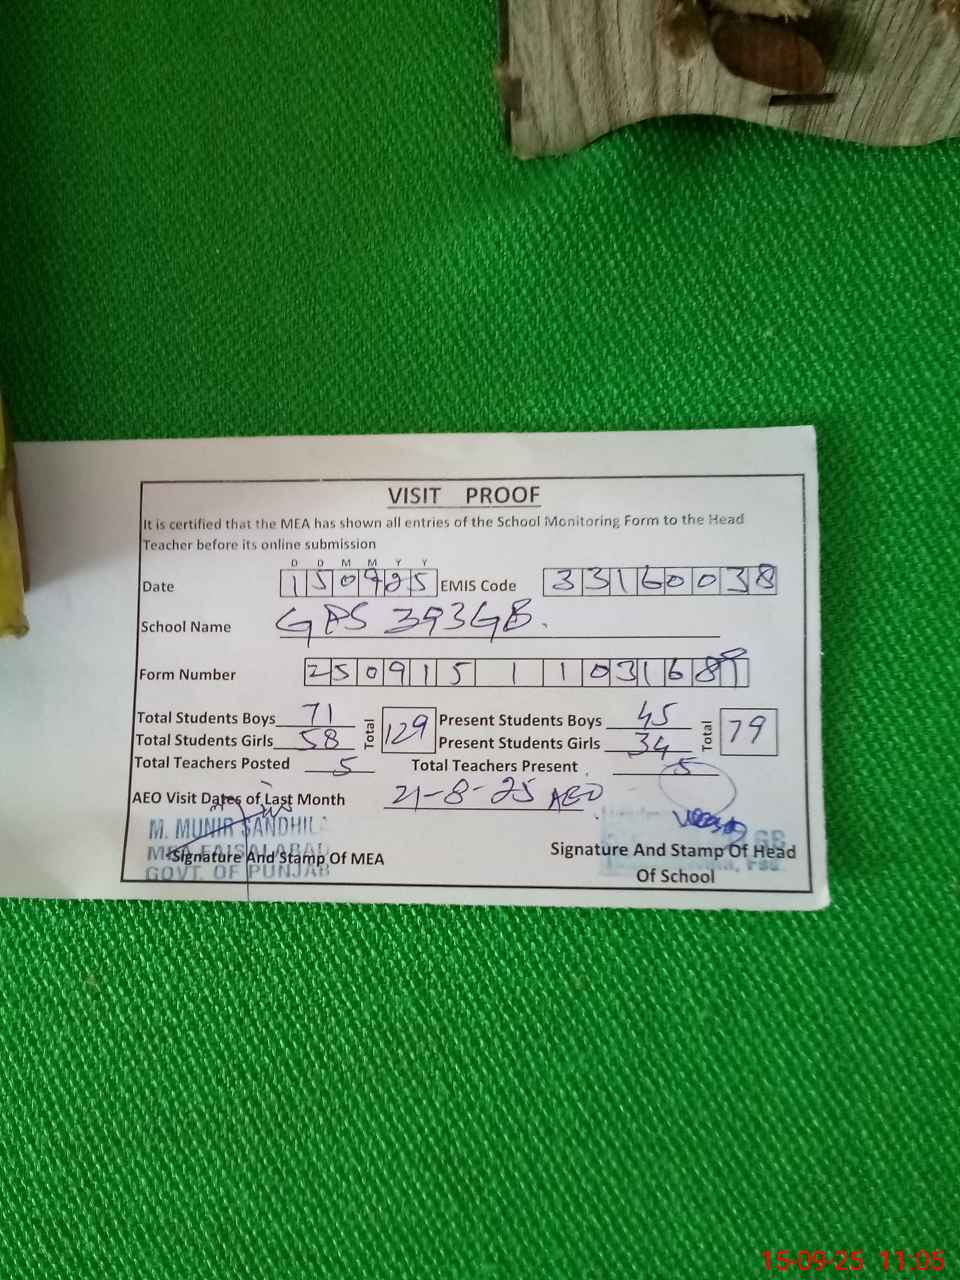 VISIT PROOF
It is certified that the MEA has shown all entries of the School Monitoring Form to the Head
Teacher before its online submission
D D M M Y Y
Date 150925 EMIS Code 33160038
School Name GPS 393GB.
Form Number 250915 1 1031689
Total Students Boys 71 Total 129 Present Students Boys 45 Total 79
Total Students Girls 58 Present Students Girls 34
Total Teachers Posted 5 Total Teachers Present 5
AEO Visit Dates of Last Month 21-8-25 AEO
M. MUNIR SANDHILA
MEA FAISALABAD
GOVT. OF PUNJAB
Signature And Stamp Of MEA
Signature And Stamp Of Head
Of School
15-09-25 11:05